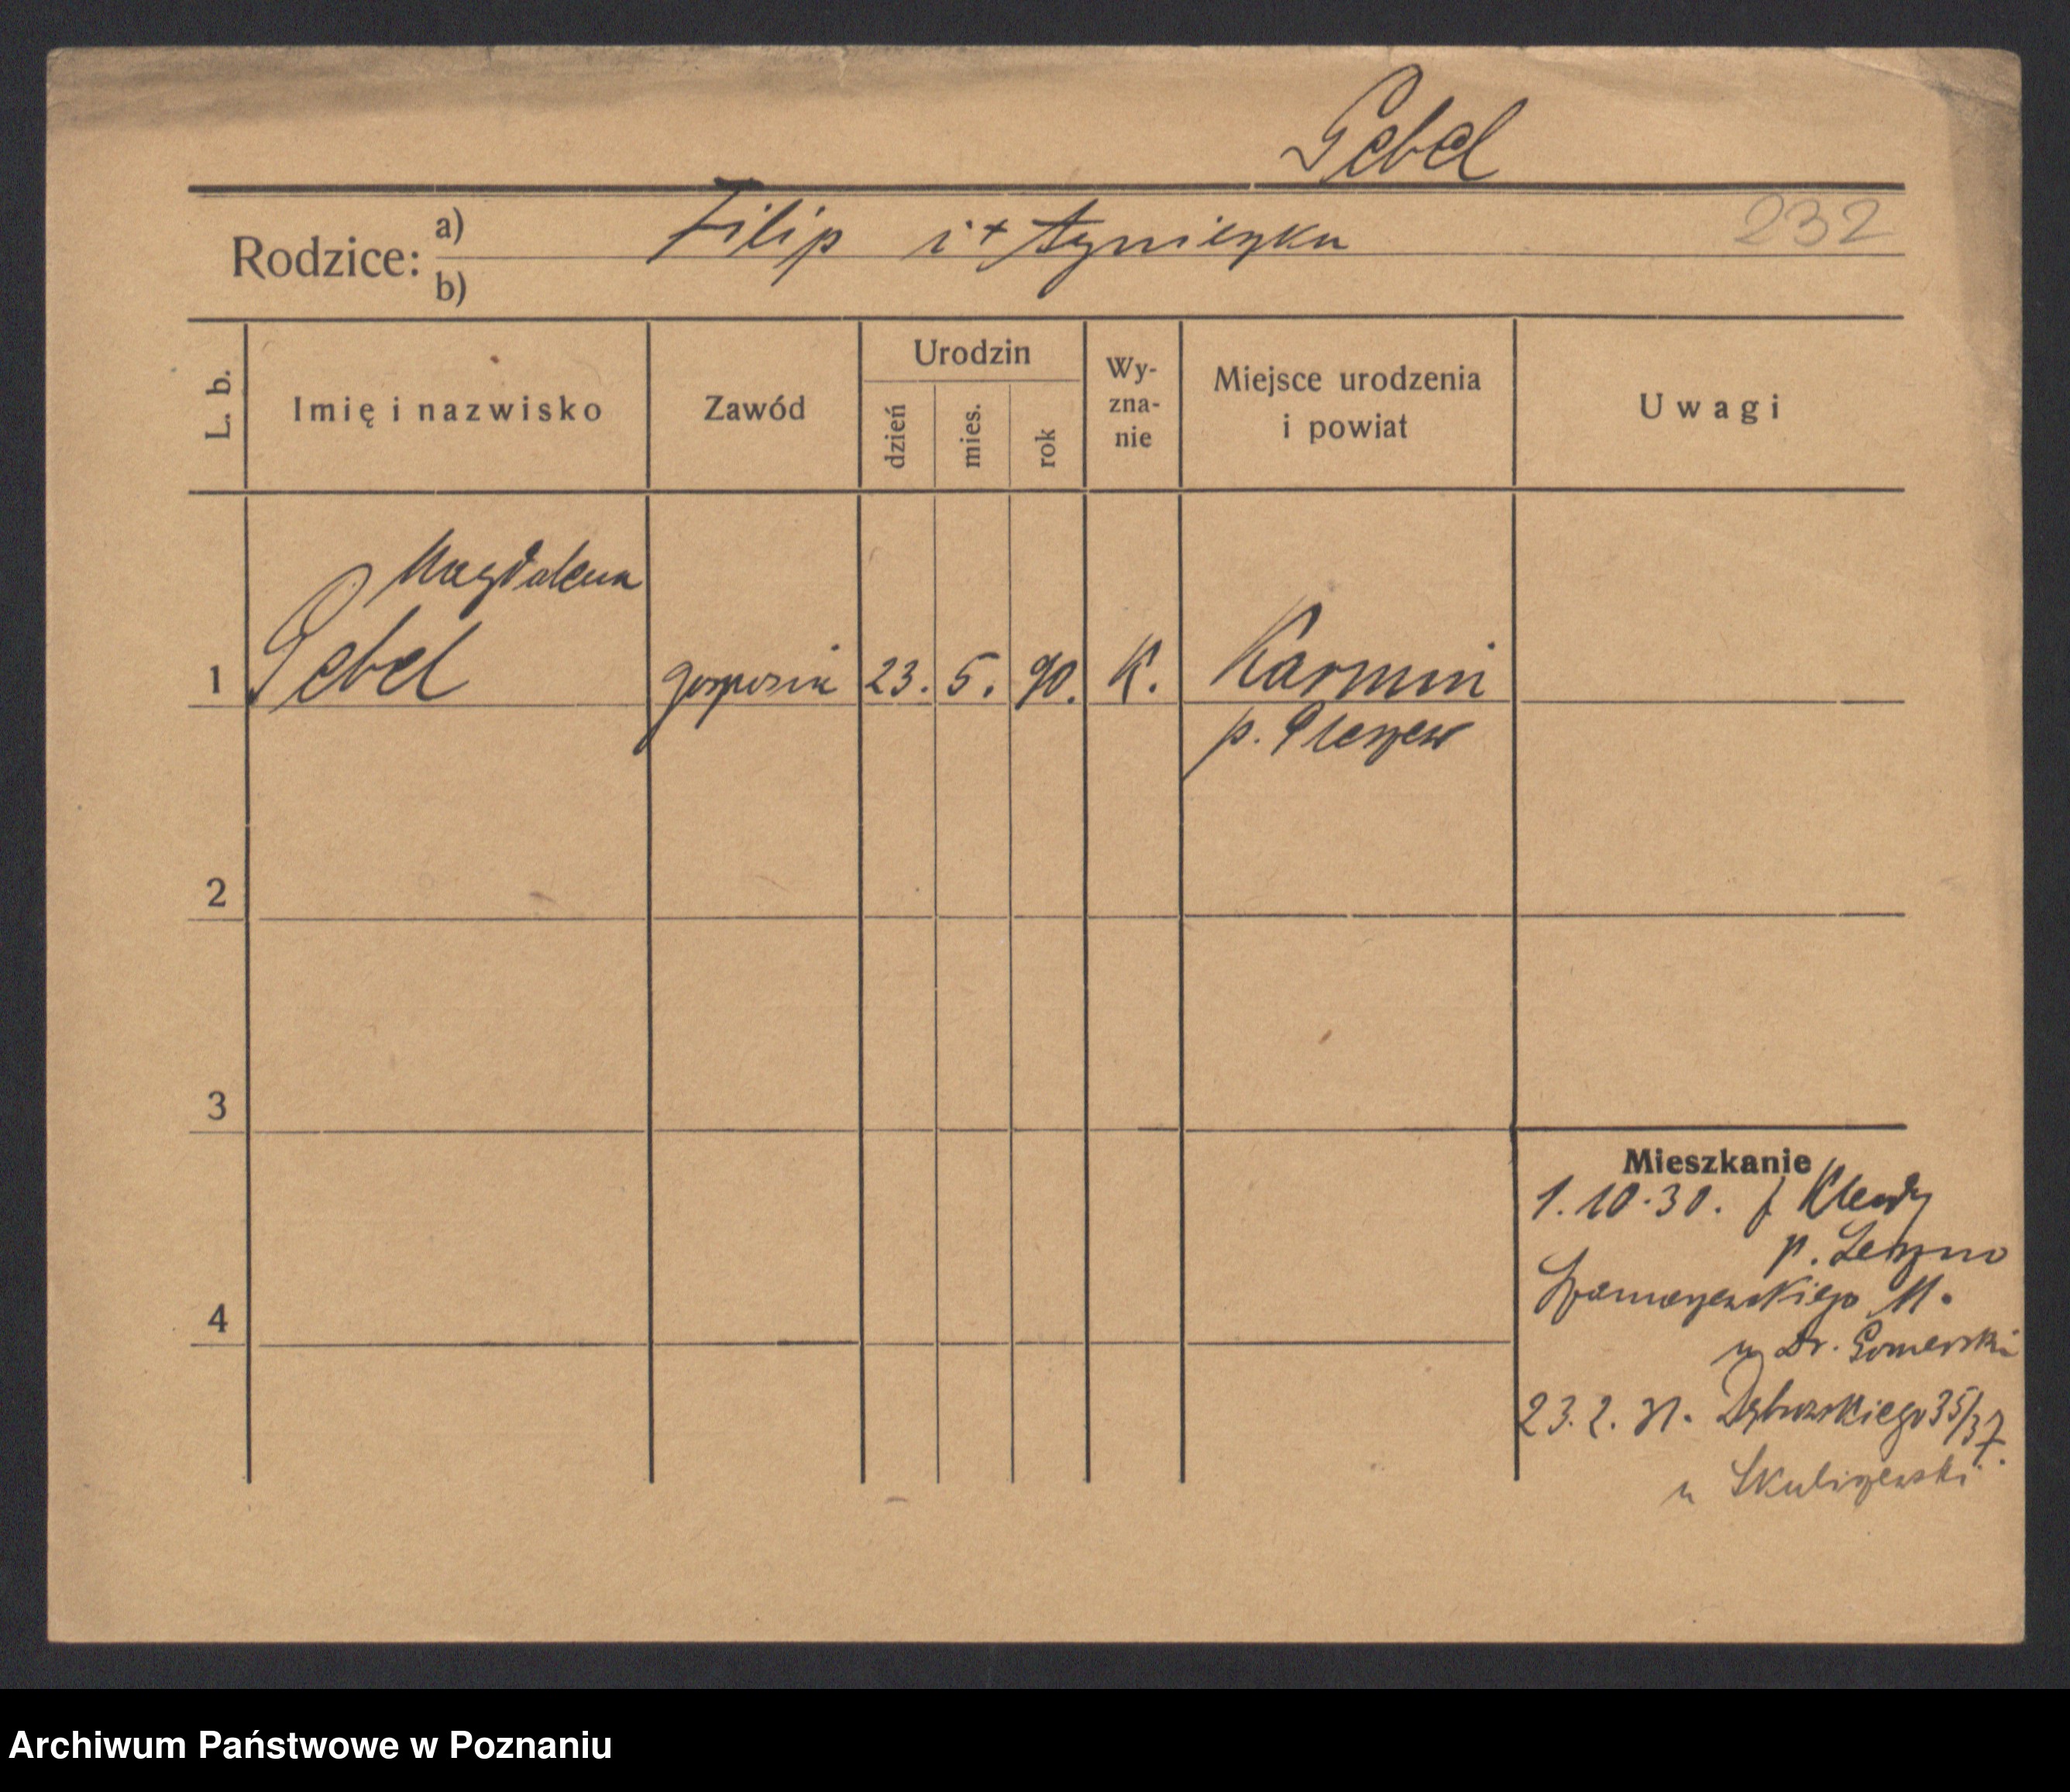 Gebel
Rodzice: a) Filip i + Agnieszka 232
b)
L. b. Imię i nazwisko Zawód Urodzin dzień mies. rok Wy-zna-nie Miejsce urodzenia i powiat Uwagi
Magdalena
1 Gebel gosposia 23. 5. 90. K. Karmin
p. Pleszew
2
3
Mieszkanie
1.10.30. f Kłody
p. Leszno
4
Szamarzewskiego 11.
u Dr.
23.2.31. Dąbrowskiego 35/37.
u
Archiwum Państwowe w Poznaniu